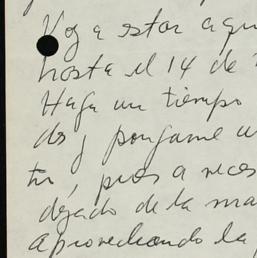 Voy a estar aquí
hasta el 14 de
Haga un tiempo
y pongame
pues a veces
dejado de la ma
aprovechando la